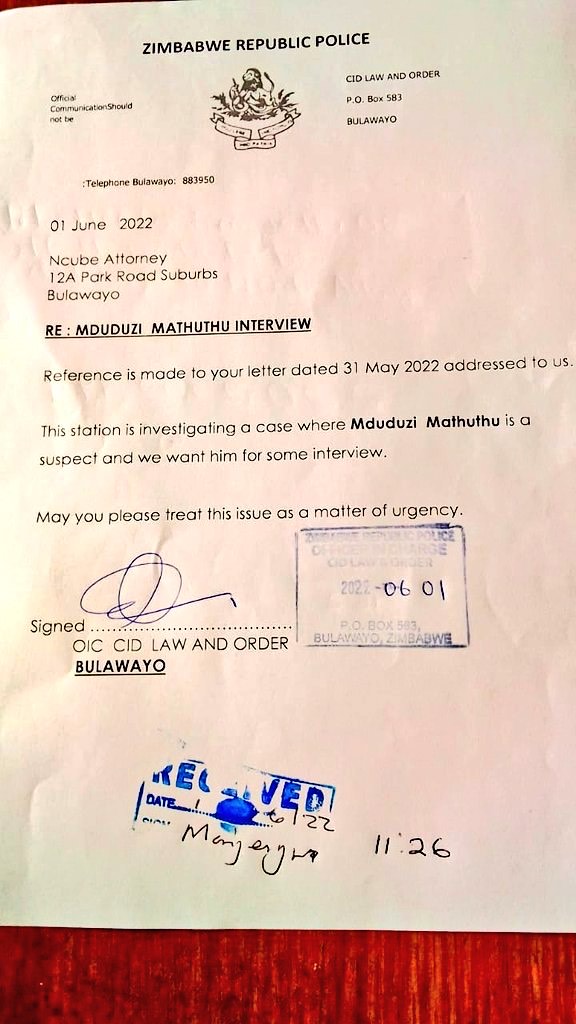 ZIMBABWE REPUBLIC POLICE
Official
CommunicationShould
not be
CID LAW AND ORDER
P.O. Box 583
BULAWAYO
:Telephone Bulawayo: 883950
01 June 2022
Ncube Attorney
12A Park Road Suburbs
Bulawayo
RE : MDUDUZI MATHUTHU INTERVIEW
Reference is made to your letter dated 31 May 2022 addressed to us.
This station is investigating a case where Mduduzi Mathuthu is a
suspect and we want him for some interview.
May you please treat this issue as a matter of urgency.
ZIMBABWE REPUBLIC POLICE
OFFICER IN CHARGE
CID LAW & ORDER
2022 -06 01
P.O. BOX 583,
BULAWAYO, ZIMBABWE
Signed ..................................
OIC CID LAW AND ORDER
BULAWAYO
RECEIVED
DATE 1 6/22
11:26